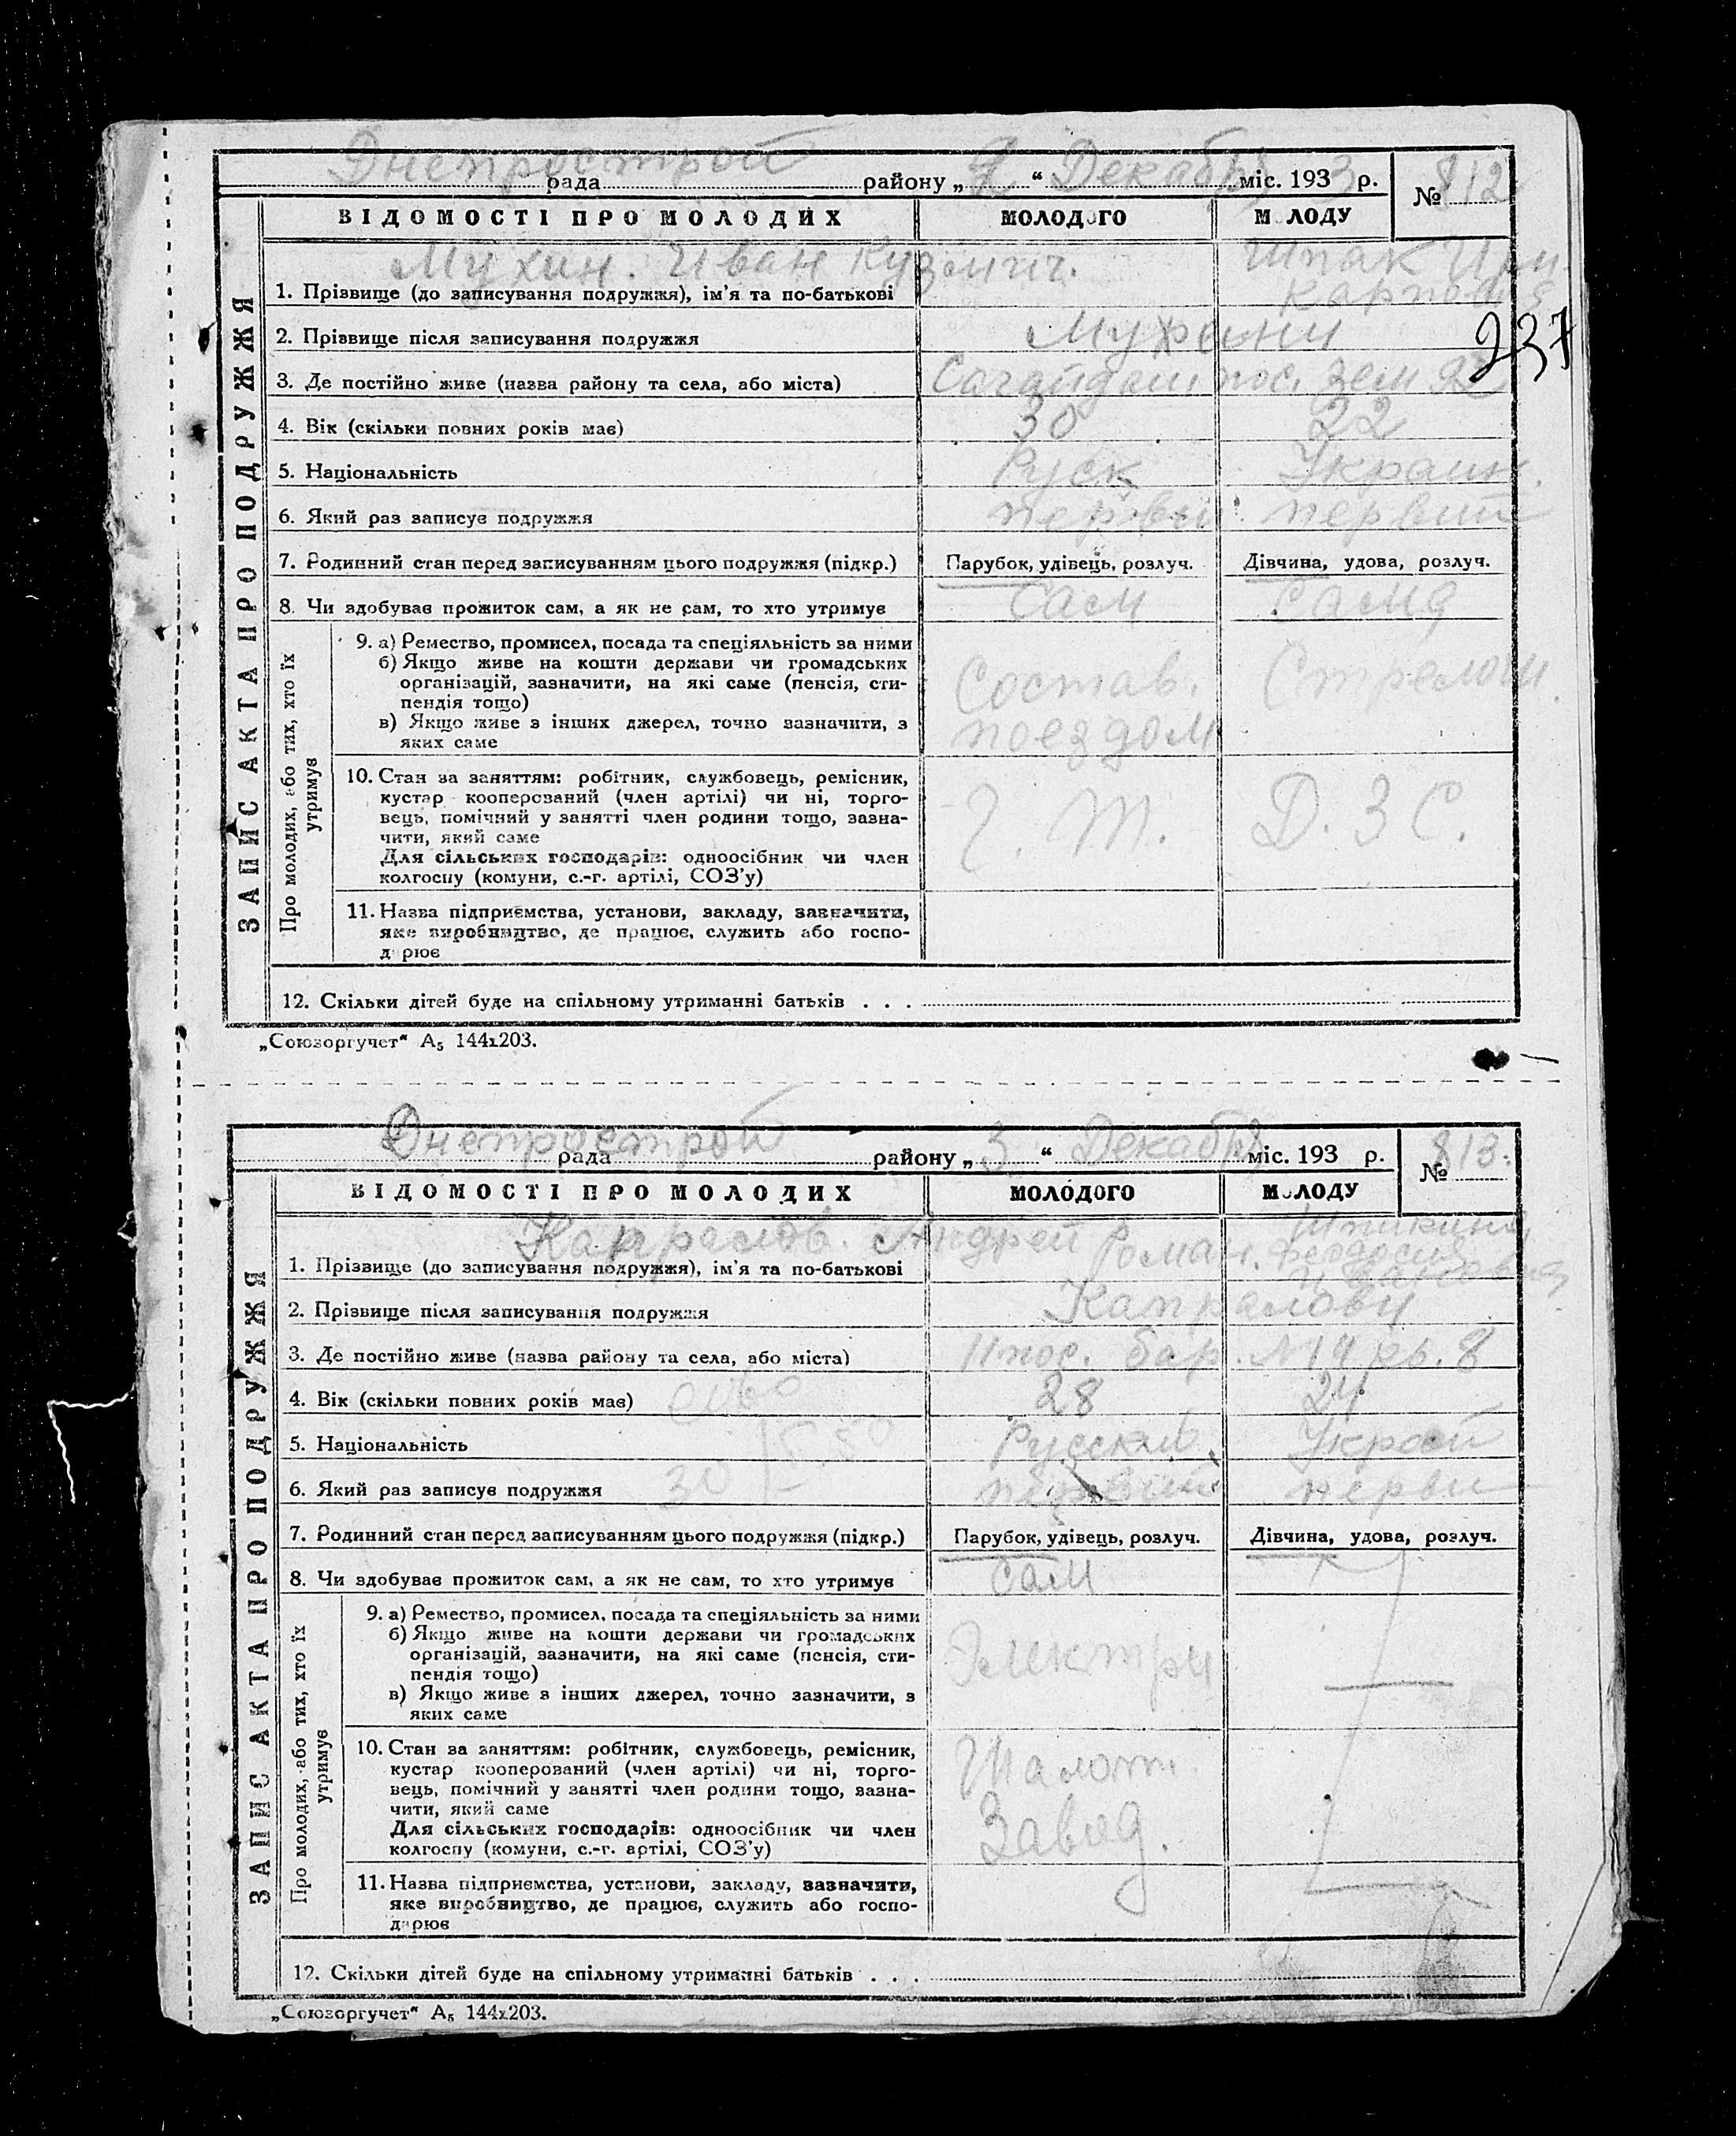 Днепрострой
рада району „ 2 “ Декабря міс. 193 3 р. № 812
ВІДОМОСТІ ПРО МОЛОДИХ МОЛОДОГО МОЛОДУ
Мухин. Иван Кузмич. Шпак Ири
1. Прізвище (до записування подружжя), ім’я та по-батькові
2. Прізвище після записування подружжя Мухини
237
3. Де постійно живе (назва району та села, або міста) пос. зем
4. Вік (скільки повних років має) 30 22
5. Національність Руск Украин.
6. Який раз записує подружжя первы первий
7. Родинний стан перед записуванням цього подружжя (підкр.) Парубок, удівець, розлуч. Дівчина, удова, розлуч.
8. Чи здобуває прожиток сам, а як не сам, то хто утримує Сам Сама
ЗАПИС АКТА ПРО ПОДРУЖЖЯ
Про молодих, або тих, хто їх
утримує
9. а) Ремество, промисел, посада та спеціяльність за ними
б) Якщо живе на кошти держави чи громадських
організацій, зазначити, на які саме (пенсія, сти-
пендія тощо)
в) Якщо живе з інших джерел, точно зазначити, з
яких саме
Состав.
поездом
10. Стан за заняттям: робітник, службовець, ремісник,
кустар кооперований (член артілі) чи ні, торго-
вець, помічний у занятті член родини тощо, зазна-
чити, який саме
Для сільських господарів: одноосібник чи член
колгоспу (комуни, с.-г. артілі, СОЗ’у)
Д. З С.
11. Назва підприємства, установи, закладу, зазначити,
яке виробництво, де працює, служить або госпо-
дарює
12. Скільки дітей буде на спільному утриманні батьків . . .
„Союзоргучет“ А5 144х203.
Днепрострой
рада району „ 3 “ Декабря міс. 193 р. № 813.
ВІДОМОСТІ ПРО МОЛОДИХ МОЛОДОГО МОЛОДУ
Капралов. Андрей Роман.
1. Прізвище (до записування подружжя), ім’я та по-батькові
2. Прізвище після записування подружжя Капраловы
3. Де постійно живе (назва району та села, або міста) пос. бар. №19 кв. 8
4. Вік (скільки повних років має) 28 24
5. Національність Русский
6. Який раз записує подружжя первий первы
7. Родинний стан перед записуванням цього подружжя (підкр.) Парубок, удівець, розлуч. Дівчина, удова, розлуч.
8. Чи здобуває прожиток сам, а як не сам, то хто утримує сам
ЗАПИС АКТА ПРО ПОДРУЖЖЯ
Про молодих, або тих, хто їх
утримує
9. а) Ремество, промисел, посада та спеціяльність за ними
б) Якщо живе на кошти держави чи громадських
організацій, зазначити, на які саме (пенсія, сти-
пендія тощо)
в) Якщо живе з інших джерел, точно зазначити, з
яких саме
Электри
10. Стан за заняттям: робітник, службовець, ремісник,
кустар кооперований (член артілі) чи ні, торго-
вець, помічний у занятті член родини тощо, зазна-
чити, який саме
Для сільських господарів: одноосібник чи член
колгоспу (комуни, с.-г. артілі, СОЗ’у)
Завод.
11. Назва підприємства, установи, закладу, зазначити,
яке виробництво, де працює, служить або госпо-
дарює
12. Скільки дітей буде на спільному утриманні батьків . . .
„Союзоргучет“ А5 144х203.